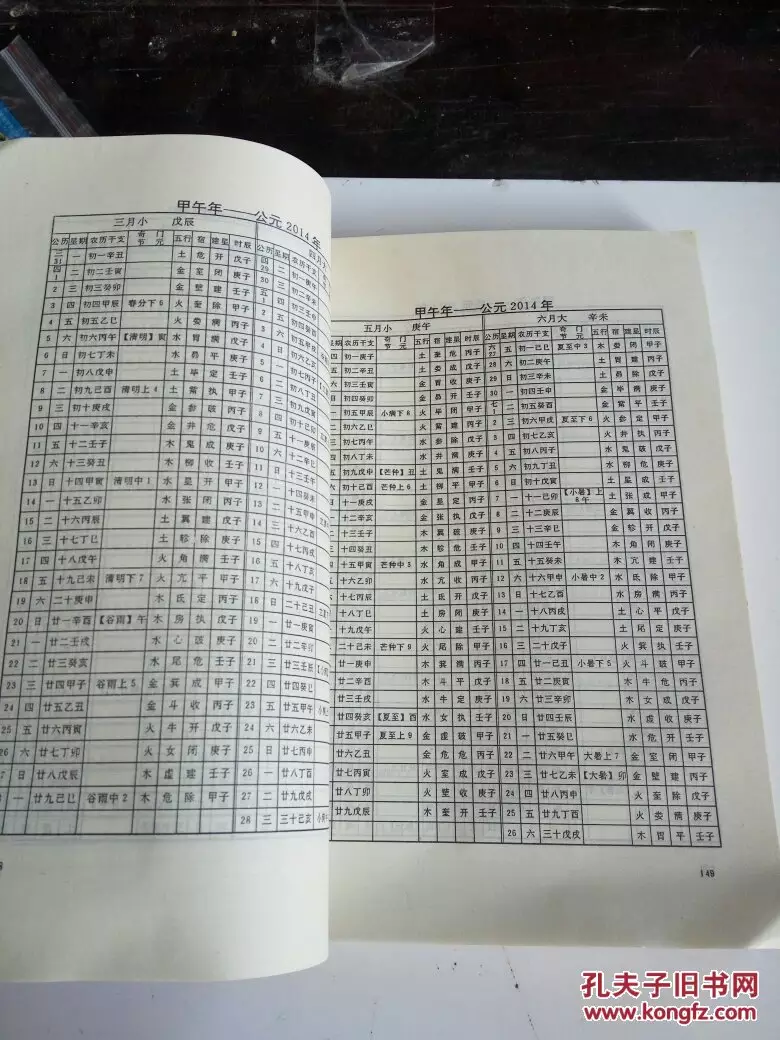 甲午年——公元2014年
三月小 戊辰
公历 星期 农历干支 奇门节元 五行 宿 建星 时辰
三31 一 初一辛丑 土 危 开 戊子
四1 二 初二壬寅 金 室 闭 庚子
2 三 初三癸卯 金 壁 建 壬子
3 四 初四甲辰 春分下6 火 奎 除 甲子
4 五 初五乙巳 火 娄 满 丙子
5 六 初六丙午 【清明】寅 水 胃 满 戊子
6 日 初七丁未 水 昴 平 庚子
7 一 初八戊申 土 毕 定 壬子
8 二 初九己酉 清明上4 土 觜 执 甲子
9 三 初十庚戌 金 参 破 丙子
10 四 十一辛亥 金 井 危 戊子
11 五 十二壬子 木 鬼 成 庚子
12 六 十三癸丑 木 柳 收 壬子
13 日 十四甲寅 清明中1 水 星 开 甲子
14 一 十五乙卯 水 张 闭 丙子
15 二 十六丙辰 土 翼 建 戊子
16 三 十七丁巳 土 轸 除 庚子
17 四 十八戊午 火 角 满 壬子
18 五 十九己未 清明下7 火 亢 平 甲子
19 六 二十庚申 木 氐 定 丙子
20 日 廿一辛酉 【谷雨】午 木 房 执 戊子
21 一 廿二壬戌 水 心 破 庚子
22 二 廿三癸亥 水 尾 危 壬子
23 三 廿四甲子 谷雨上5 金 箕 成 甲子
24 四 廿五乙丑 金 斗 收 丙子
25 五 廿六丙寅 火 牛 开 戊子
26 六 廿七丁卯 火 女 闭 庚子
27 日 廿八戊辰 木 虚 建 壬子
一 廿九己巳 谷雨中2 木 危 除 甲子
四月大
公历 星期 农历干支
四29 二 初一庚午
30 三 初二辛未
五1 四 初三壬申
2 五 初四癸酉
3 六 初五甲戌
4 日 初六乙亥
5 一 初七丙子
6 二 初八丁丑
7 三 初九戊寅
8 四 初十己卯
9 五 十一庚辰
10 六 十二辛巳
11 日 十三壬午
12 一 十四癸未
13 二 十五甲申
14 三 十六乙酉
15 四 十七丙戌
16 五 十八丁亥
17 六 十九戊子
18 日 二十己丑
19 一 廿一庚寅
20 二 廿二辛卯
21 三 廿三壬辰
22 四 廿四癸巳
23 五 廿五甲午
24 六 廿六乙未
25 日 廿七丙申
26 一 廿八丁酉
27 二 廿九戊戌
28 三 三十己亥
甲午年——公元2014年
五月小 庚午
星期 农历干支 奇门节元 五行 宿 建星 时辰
四 初一庚子 土 奎 危 丙子
五 初二辛丑 土 娄 成 戊子
六 初三壬寅 金 胃 收 庚子
日 初四癸卯 金 昴 开 壬子
一 初五甲辰 小满下8 火 毕 闭 甲子
二 初六乙巳 火 觜 建 丙子
三 初七丙午 水 参 除 戊子
四 初八丁未 水 井 满 庚子
五 初九戊申 【芒种】丑 土 鬼 满 壬子
六 初十己酉 芒种上6 土 柳 平 甲子
日 十一庚戌 金 星 定 丙子
一 十二辛亥 金 张 执 戊子
二 十三壬子 木 翼 破 庚子
三 十四癸丑 木 轸 危 壬子
四 十五甲寅 芒种中3 水 角 成 甲子
五 十六乙卯 水 亢 收 丙子
六 十七丙辰 土 氐 开 戊子
日 十八丁巳 土 房 闭 庚子
一 十九戊午 火 心 建 壬子
二 二十己未 芒种下9 火 尾 除 甲子
三 廿一庚申 木 箕 满 丙子
四 廿二辛酉 木 斗 平 戊子
五 廿三壬戌 水 牛 定 庚子
六 廿四癸亥 【夏至】酉 水 女 执 壬子
日 廿五甲子 夏至上9 金 虚 破 甲子
一 廿六乙丑 金 危 危 丙子
二 廿七丙寅 火 室 成 戊子
三 廿八丁卯 火 壁 收 庚子
四 廿九戊辰 木 奎 开 壬子
六月大 辛未
公历 星期 农历干支 奇门节元 五行 宿 建星 时辰
六27 五 初一己巳 夏至中3 木 娄 闭 甲子
28 六 初二庚午 土 胃 建 丙子
29 日 初三辛未 土 昴 除 戊子
30 一 初四壬申 金 毕 满 庚子
七1 二 初五癸酉 金 觜 平 壬子
2 三 初六甲戌 夏至下6 火 参 定 甲子
3 四 初七乙亥 火 井 执 丙子
4 五 初八丙子 水 鬼 破 戊子
5 六 初九丁丑 水 柳 危 庚子
6 日 初十戊寅 土 星 成 壬子
7 一 十一己卯 【小暑】上8午 土 张 成 甲子
8 二 十二庚辰 金 翼 收 丙子
9 三 十三辛巳 金 轸 开 戊子
10 四 十四壬午 木 角 闭 庚子
11 五 十五癸未 木 亢 建 壬子
12 六 十六甲申 小暑中2 水 氐 除 甲子
13 日 十七乙酉 水 房 满 丙子
14 一 十八丙戌 土 心 平 戊子
15 二 十九丁亥 土 尾 定 庚子
16 三 二十戊子 火 箕 执 壬子
17 四 廿一己丑 小暑下5 火 斗 破 甲子
18 五 廿二庚寅 木 牛 危 丙子
19 六 廿三辛卯 木 女 成 戊子
20 日 廿四壬辰 水 虚 收 庚子
21 一 廿五癸巳 水 危 开 壬子
22 二 廿六甲午 大暑上7 金 室 闭 甲子
23 三 廿七乙未 【大暑】卯 金 壁 建 丙子
24 四 廿八丙申 火 奎 除 戊子
25 五 廿九丁酉 火 娄 满 庚子
26 六 三十戊戌 木 胃 平 壬子
149
孔夫子旧书网
www.kongfz.com